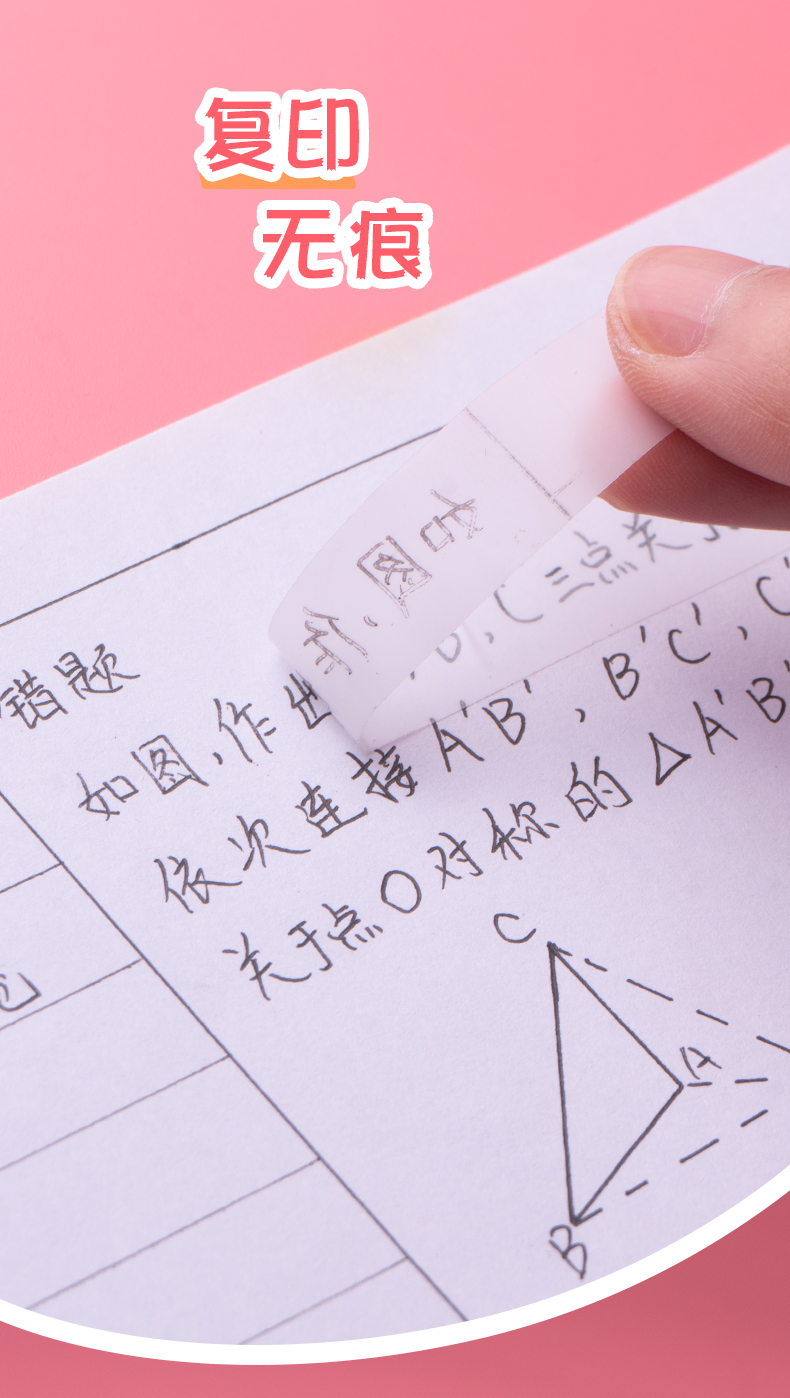 复印
无痕
错题
如图,作出 B,C三点关于
依次连接A'B',B'C',C'
关于点O对称的△A'B'
如图,作
C
A
B